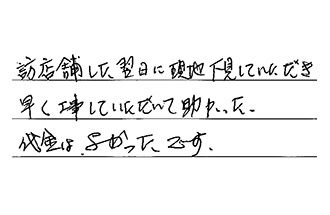 訪店舗した翌日に現地下見していただき
早く工事していただいて助かった。
代金は、よかったです。